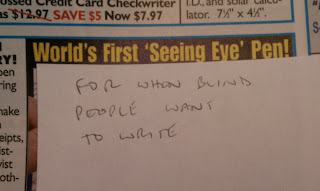 ossed Credit Card Checkwriter
as $12.97 SAVE $5 Now $7.97
I.D., and solar calcu-
lator. 7½" x 4¼".
World's First 'Seeing Eye' Pen!
RY!
pen
ring
make
n
eipts,
ist-
vist
oth-
FOR WHEN BLIND
PEOPLE WANT
TO WRITE